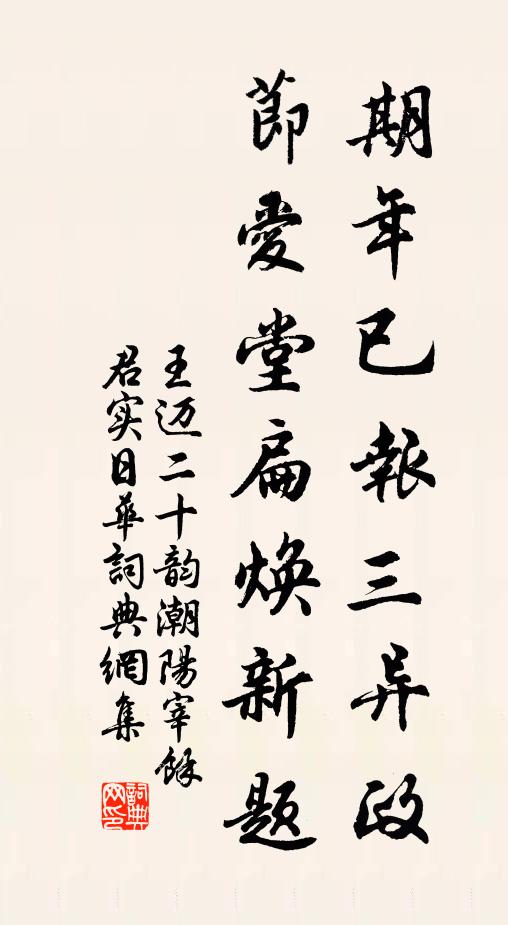 期年已報三异政
節愛堂扁焕新題
王迈二十韵潮陽宰餘
君实日華詞典網集
詞典
网印